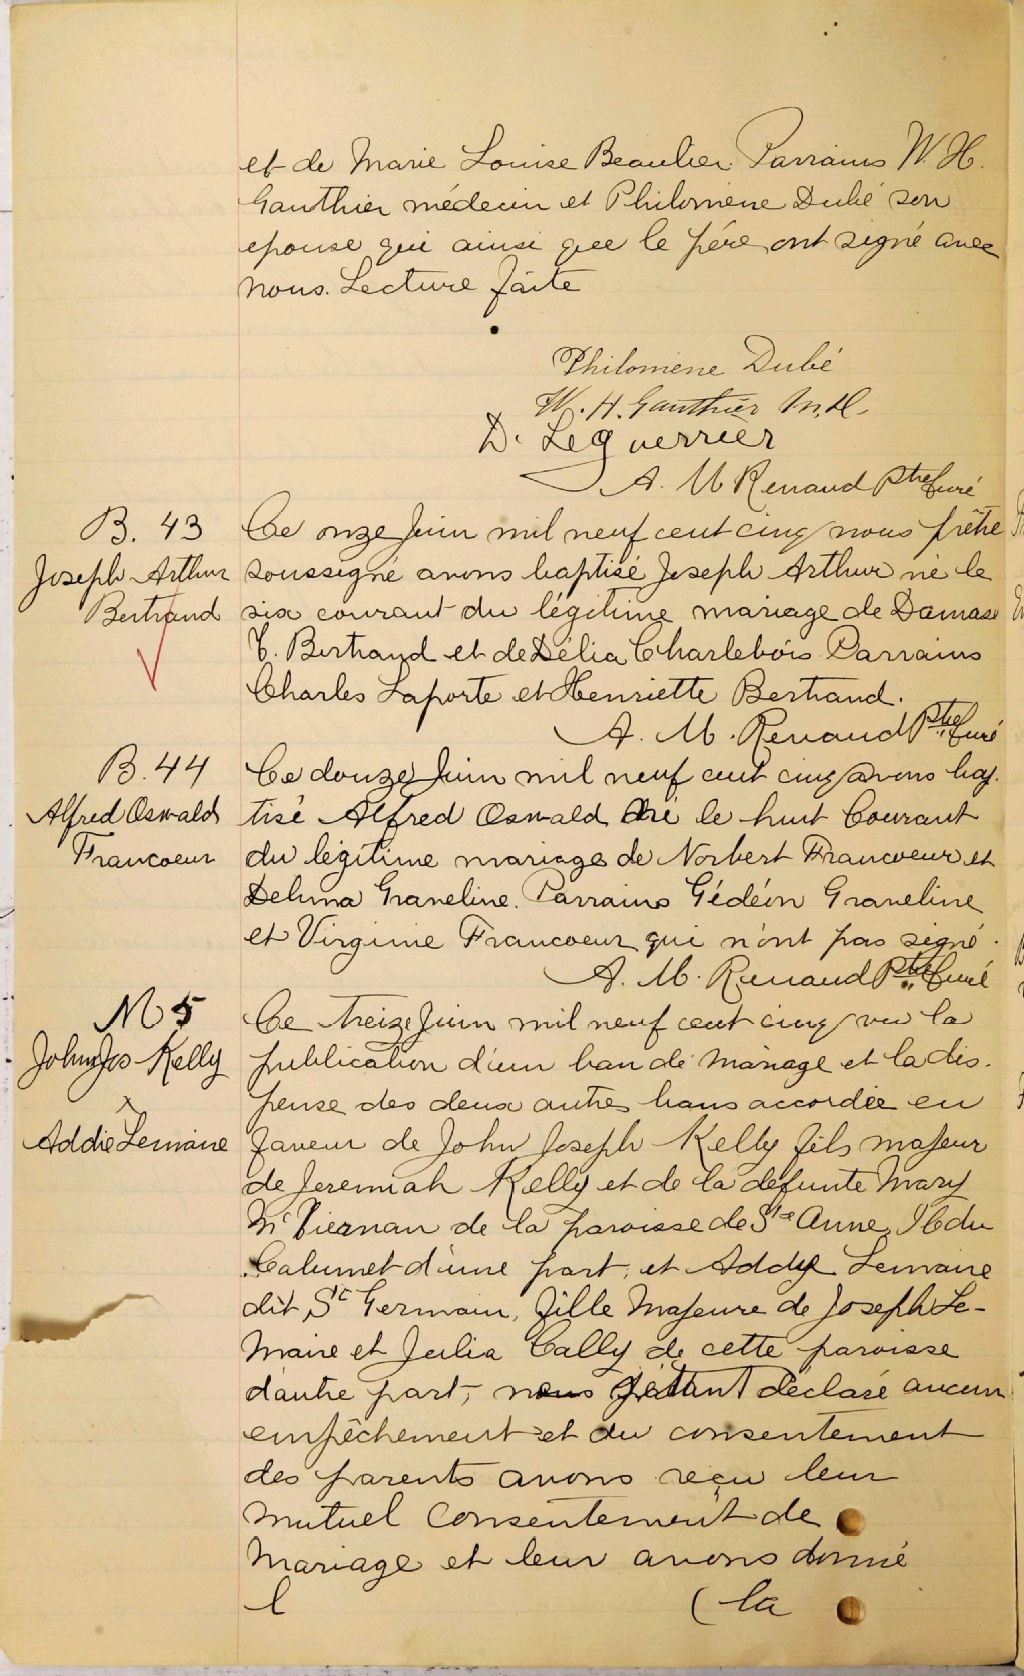 et de Marie Louise Beaulier. Parrains W. H.
Gauthier médecin et Philomène Dubé son
epouse qui ainsi que le père ont signé avec
nous. Lecture faite
Philomene Dubé
W. H. Gauthier M.D.
D. Leguerrier
A. M Renaud Ptre Curé
B. 43
Joseph Arthur
Bertrand
Ce onze Juin mil neuf cent cinq nous prêtre
soussigné avons baptisé Joseph Arthur né le
six courant du légitime mariage de Damase
T. Bertrand et de Délia Charlebois. Parrains
Charles Laporte et Henriette Bertrand.
A. M. Renaud Ptre Curé
B. 44
Alfred Oswald
Francoeur
Ce douze Juin mil neuf cent cinq avons bap-
tisé Alfred Oswald né le huit Courant
du légitime mariage de Norbert Francoeur et
Delima Graveline. Parrains Gédéon Graveline
et Virginie Francoeur qui n'ont pas signé.
A. M. Renaud Ptre Curé
M 5
John Jos Kelly
&
Addie Lemaire
Ce treize Juin mil neuf cent cinq vu la
publication d'un ban de mariage et la dis-
pense des deux autres bans accordée en
faveur de John Joseph Kelly fils majeur
de Jeremiah Kelly et de la defunte Mary
Mc Tiernan de la paroisse de Ste Anne, I. du
Calumet d'une part; et Addye Lemaire
dit St Germain, fille Majeure de Joseph Le-
maire et Julia Cally de cette paroisse
d'autre part; étant déclaré aucun
empêchement et du consentement
des parents avons reçu leur
mutuel consentement de
Mariage et leur avons donné
(la